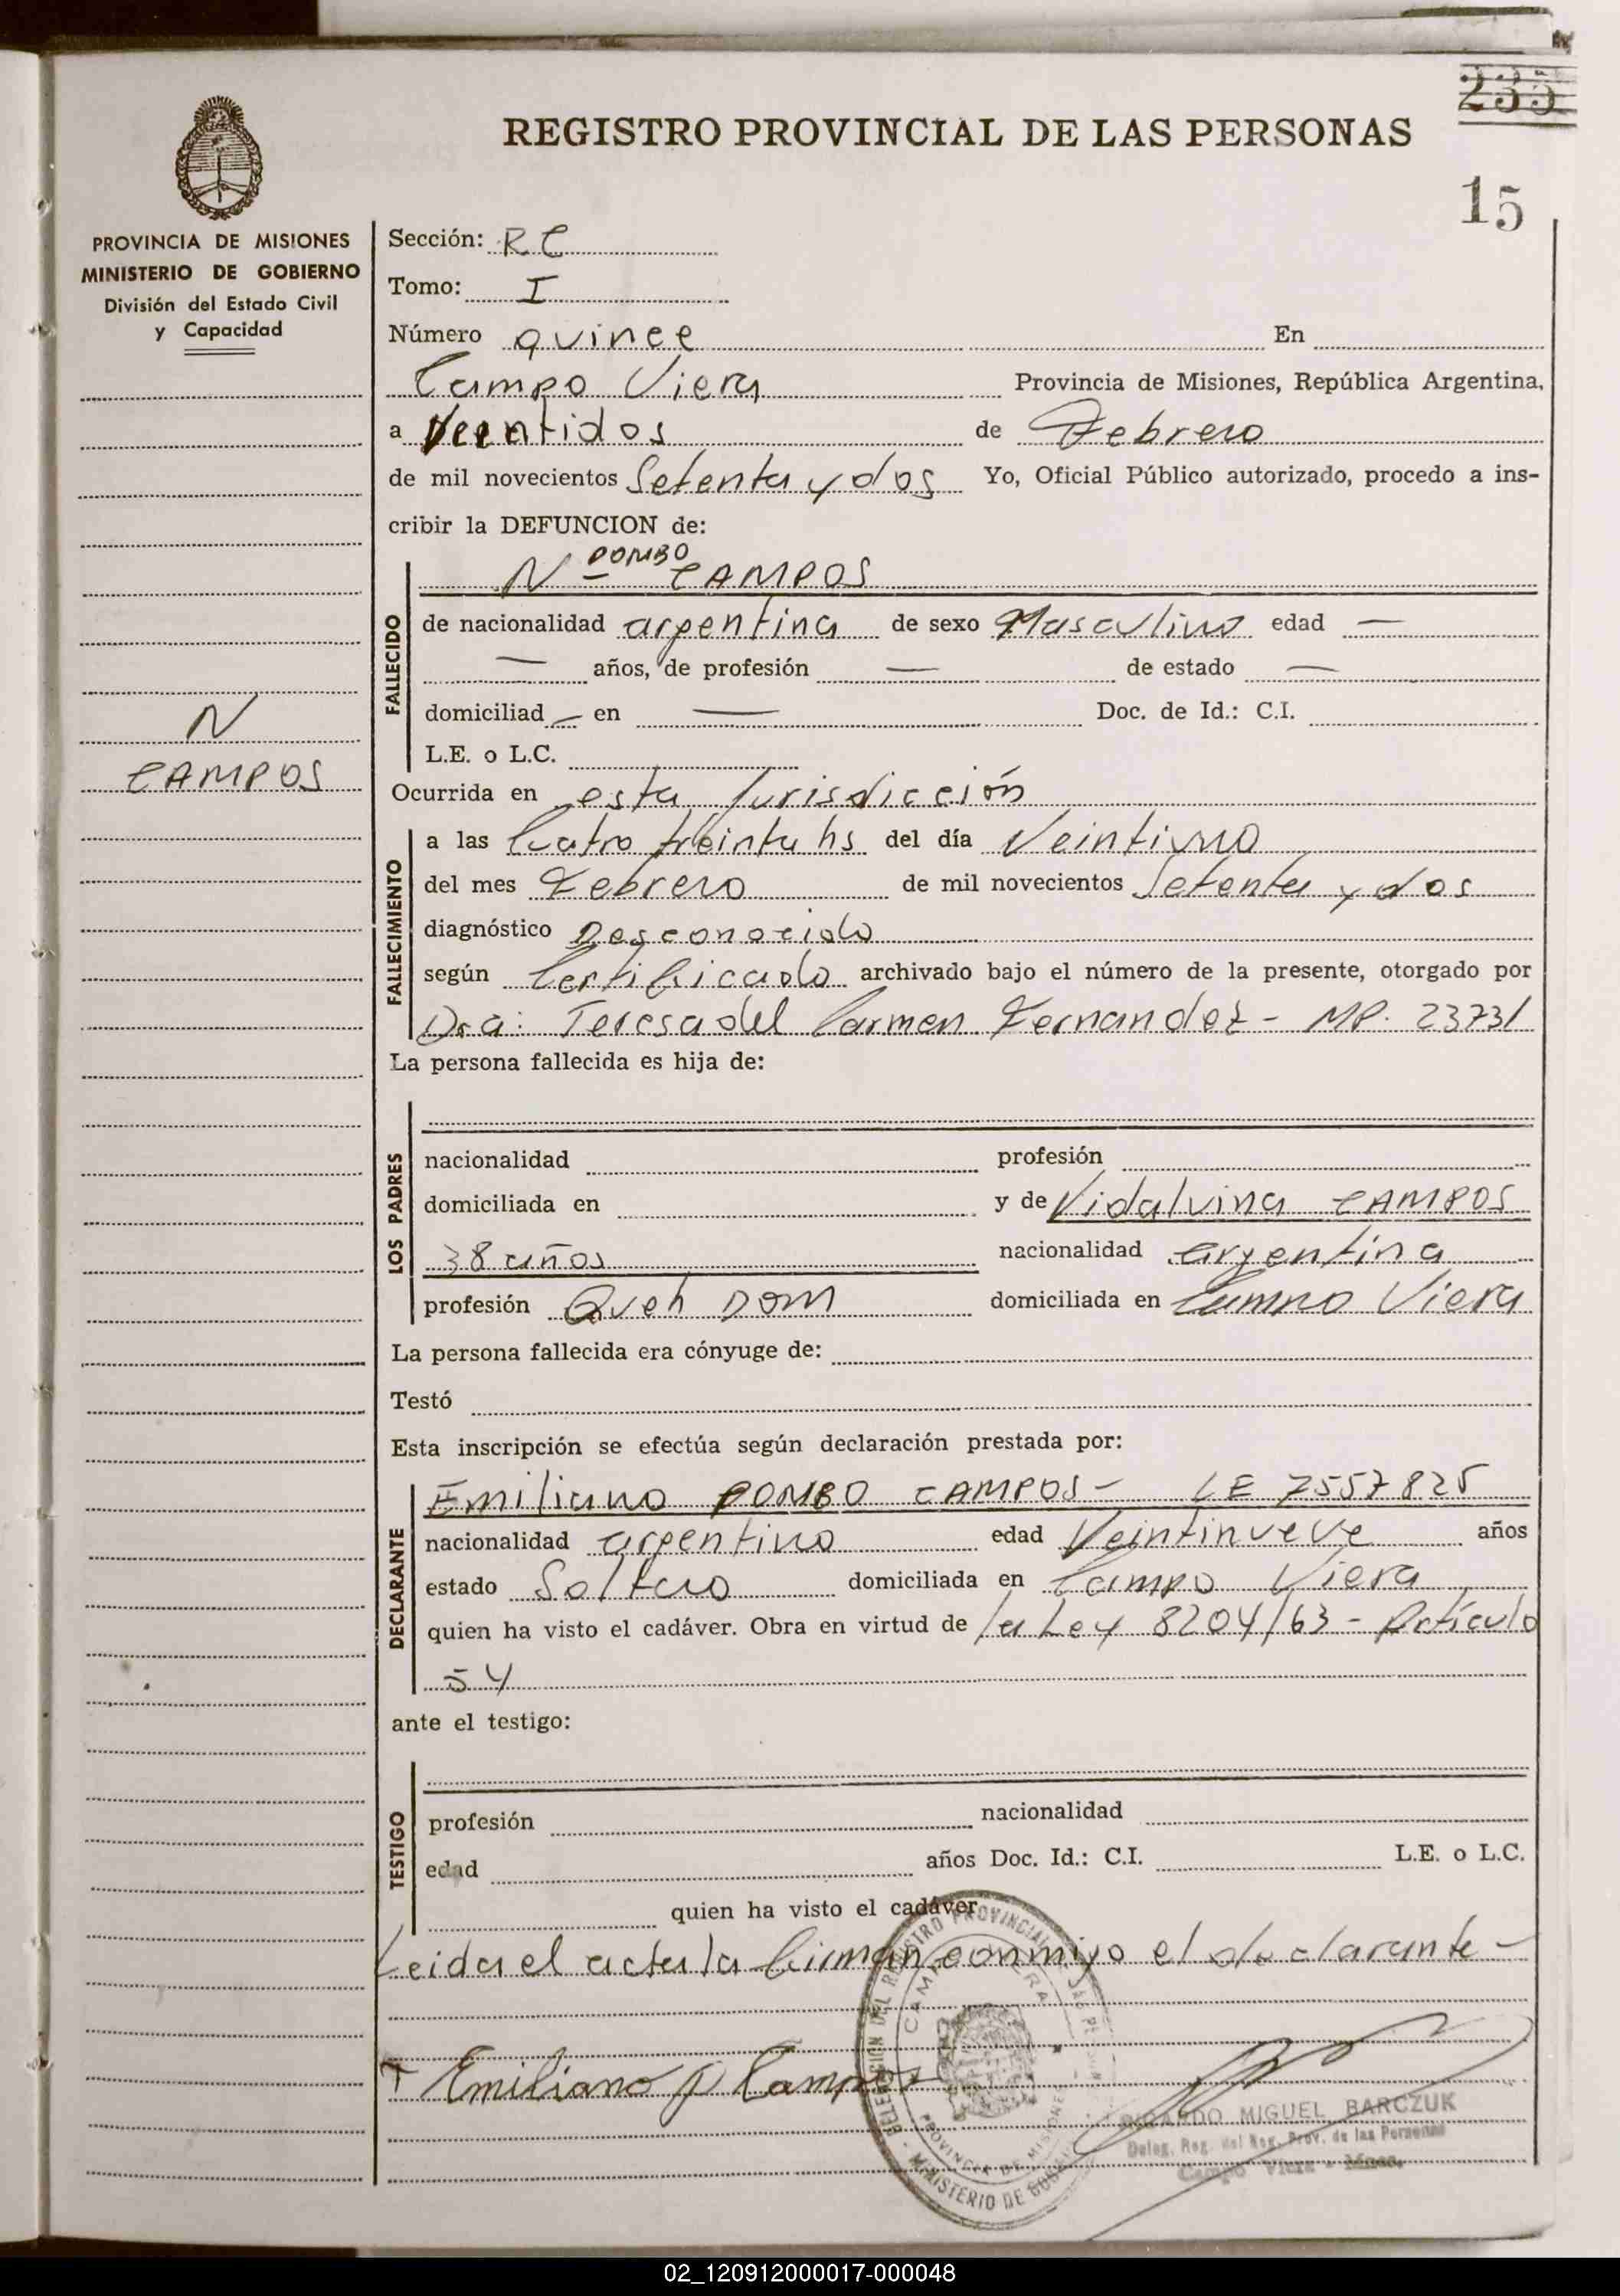 235
REGISTRO PROVINCIAL DE LAS PERSONAS
15
PROVINCIA DE MISIONES
MINISTERIO DE GOBIERNO
División del Estado Civil
y Capacidad
N
CAMPOS
Sección: RC
Tomo: I
Número quince En
Campo Viera Provincia de Misiones, República Argentina,
a Veentidos de Febrero
de mil novecientos Setenta y dos Yo, Oficial Público autorizado, procedo a ins-
cribir la DEFUNCION de:
POMBO
N - CAMPOS
FALLECIDO
de nacionalidad argentina de sexo Masculino edad —
— años, de profesión — de estado —
domiciliad — en — Doc. de Id.: C.I.
L.E. o L.C.
Ocurrida en esta Jurisdicción
FALLECIMIENTO
a las Cuatro treinta hs del día Veintiuno
del mes Febrero de mil novecientos Setenta y dos
diagnóstico Desconocido
según Certificado archivado bajo el número de la presente, otorgado por
Dra: Teresa del Carmen Fernandez - MP. 23731
La persona fallecida es hija de:
LOS PADRES
nacionalidad profesión
domiciliada en y de Vidalvina CAMPOS
38 años nacionalidad argentina
profesión Queh Dom domiciliada en Campo Viera
La persona fallecida era cónyuge de:
Testó
Esta inscripción se efectúa según declaración prestada por:
DECLARANTE
Emiliano POMBO CAMPOS - LE 7557825
nacionalidad argentino edad Veintinueve años
estado Soltero domiciliada en Campo Viera
quien ha visto el cadáver. Obra en virtud de la Ley 8204/63 - Artículo
54
ante el testigo:
TESTIGO
profesión nacionalidad
edad años Doc. Id.: C.I. L.E. o L.C.
quien ha visto el cadáver
Leida el acta la firman conmigo el declarante -
Emiliano P Campos
DELEGACION DEL REGISTRO PROVINCIAL DE LAS PERSONAS
CAMPO VIERA
PROVINCIA DE MISIONES
MINISTERIO DE GOBIERNO
RICARDO MIGUEL BARCZUK
Deleg. Reg. del Reg. Prov. de las Personas
Campo Viera - Mnes.
02_120912000017-000048